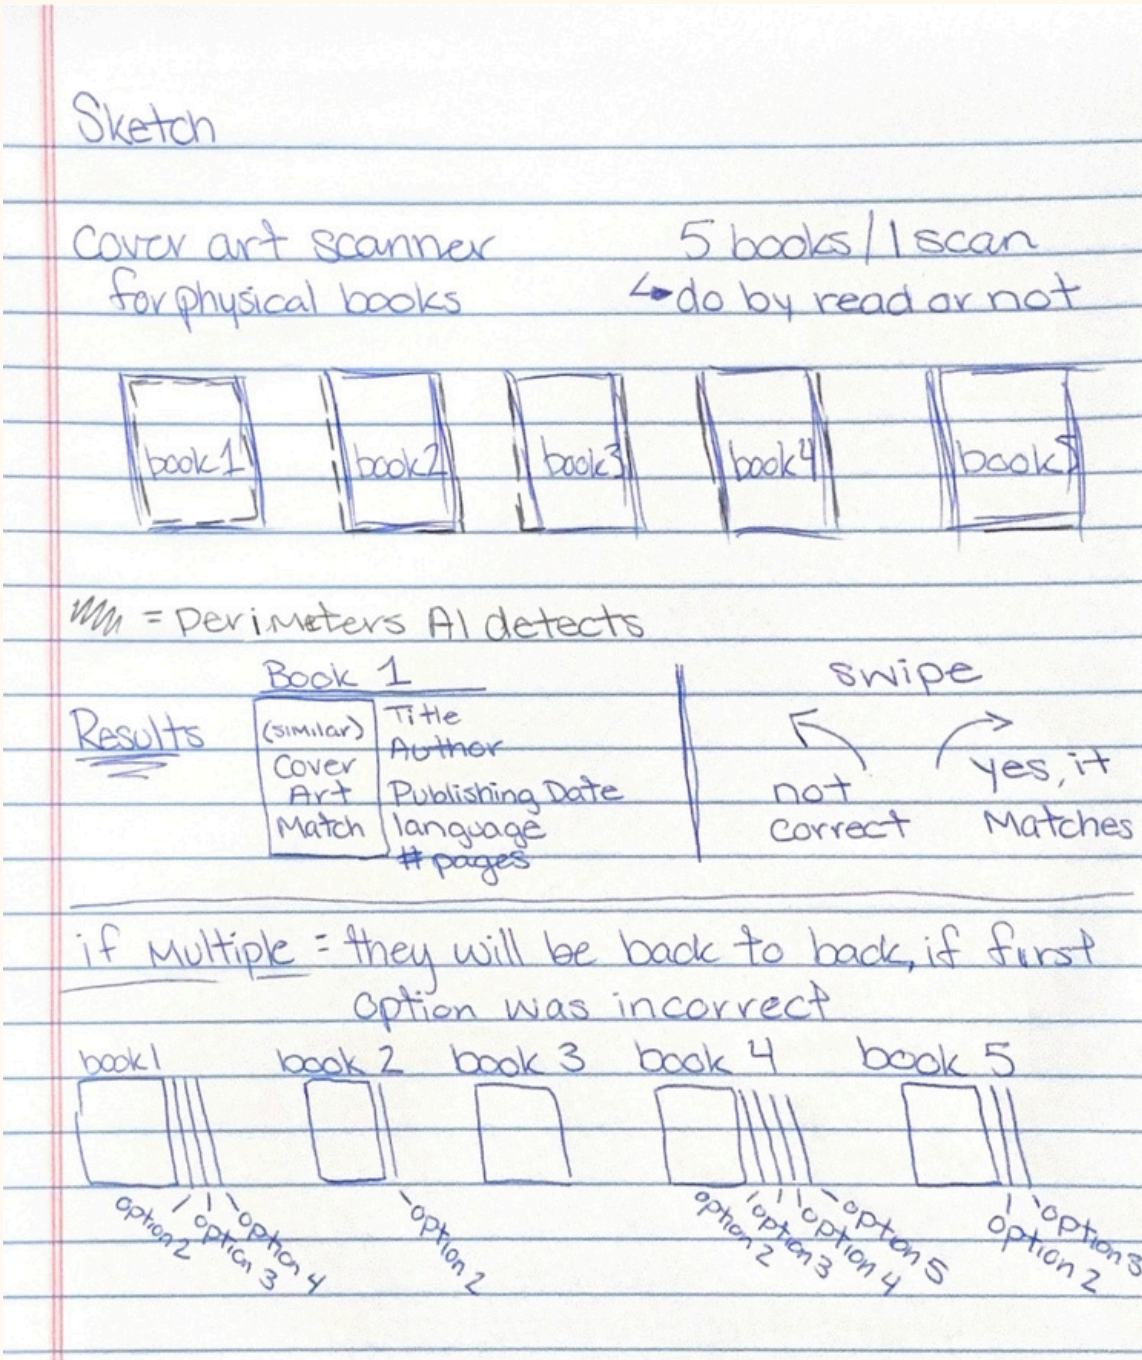 Sketch
cover art scanner
for physical books
5 books / 1 scan
↳ do by read or not
book 1
book 2
book 3
book 4
book 5
= Perimeters AI detects
Results
Book 1
(similar)
Cover
Art
Match
Title
Author
Publishing Date
language
# pages
swipe
not
correct
yes, it
Matches
if Multiple = they will be back to back, if first
option was incorrect
book 1
option 2
option 3
option 4
book 2
option 2
book 3
book 4
option 2
option 3
option 4
option 5
book 5
option 2
option 3